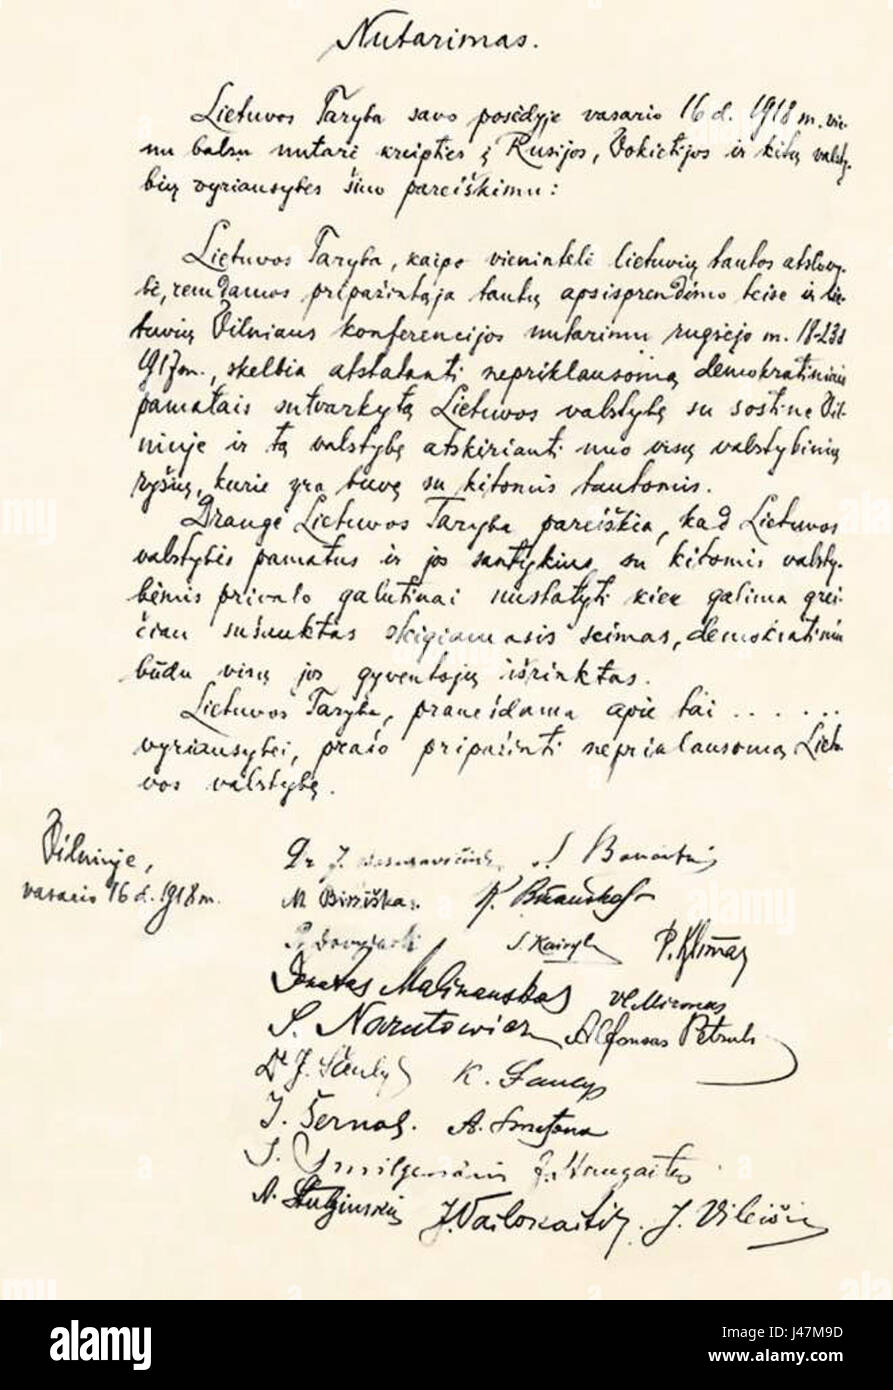 Nutarimas.
Lietuvos Taryba savo posėdyje vasario 16 d. 1918 m. vie-
nu balsu nutarė kreipties į Rusijos, Vokietijos ir kitų valsty-
bių vyriausybes šiuo pareiškimu:
Lietuvos Taryba, kaipo vienintelė lietuvių tautos atstovy-
bė, remdamos pripažintąja tautų apsisprendimo teise ir lie-
tuvių Vilniaus konferencijos nutarimu rugsėjo m. 18-23 d
1917 m., skelbia atstatanti nepriklausomą demokratiniais
pamatais sutvarkytą Lietuvos valstybę su sostine Vil-
niuje ir tą valstybę atskirianti nuo visų valstybinių
ryšių, kurie yra buvę su kitomis tautomis.
Drauge Lietuvos Taryba pareiškia, kad Lietuvos
valstybės pamatus ir jos santykius su kitomis valsty-
bėmis privalo galutinai nustatyti kiek galima grei-
čiau sušauktas steigiamasis seimas, demokratiniu
būdu visų jos gyventojų išrinktas.
Lietuvos Taryba, pranešdama apie tai . . . . . .
vyriausybei, prašo pripažinti nepriklausomą Lietu-
vos valstybę.
Vilniuje,
vasario 16 d. 1918 m.
Dr J. Basanavičius S. Banaitis
M. Biržiška K. Bizauskas
P. Dovydaitis S. Kairys P. Klimas
Donatas Malinauskas Vl. Mironas
S. Narutowicz Alfonsas Petrulis
Dr J. Šaulys K. Šaulys
J. Šernas. A. Smetona
J. Smilgevičius J. Staugaitis
A. Stulginskis J. Vailokaitis J. Vileišis
alamy
Image ID: J47M9D
www.alamy.com